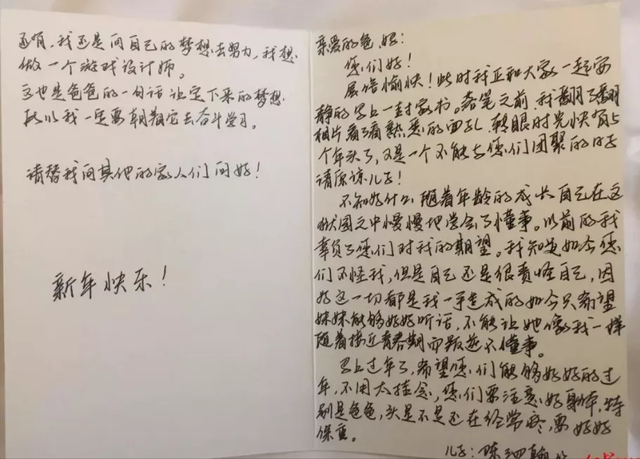 亲爱的爸、妈：
您们好！
展信愉快！此时我正和大家一起安
静的写上一封家书。落笔之前我翻了翻
相片看了看熟悉的面孔，转眼时光快
个年头了，又是一个不能与您们团聚的日子
请原谅儿子！
不知为什么随着年龄的成长自己在这
之中慢慢地学会了懂事。以前的我
辜负了您们对我的期望。我知道如今您
们不怪我，但是自己还是很责怪自己，因
为这一切都是我一手造成的如今只希望
妹妹能够好好听话，不能让她像我一样
随着接近青春期而叛逆不懂事。
马上过年了，希望您们能够好好的过
年，不用太挂念，您们要注意好身体，特
别是爸爸，头是不是还在经常疼，要好好
保重。
儿子：陈
还有，我还是向自己的梦想去努力，我想
做一个游戏设计师。
这也是爸爸的一句话让定下来的梦想
所以我一定要朝着它去奋斗学习。
请替我向其他的家人们问好！
新年快乐！